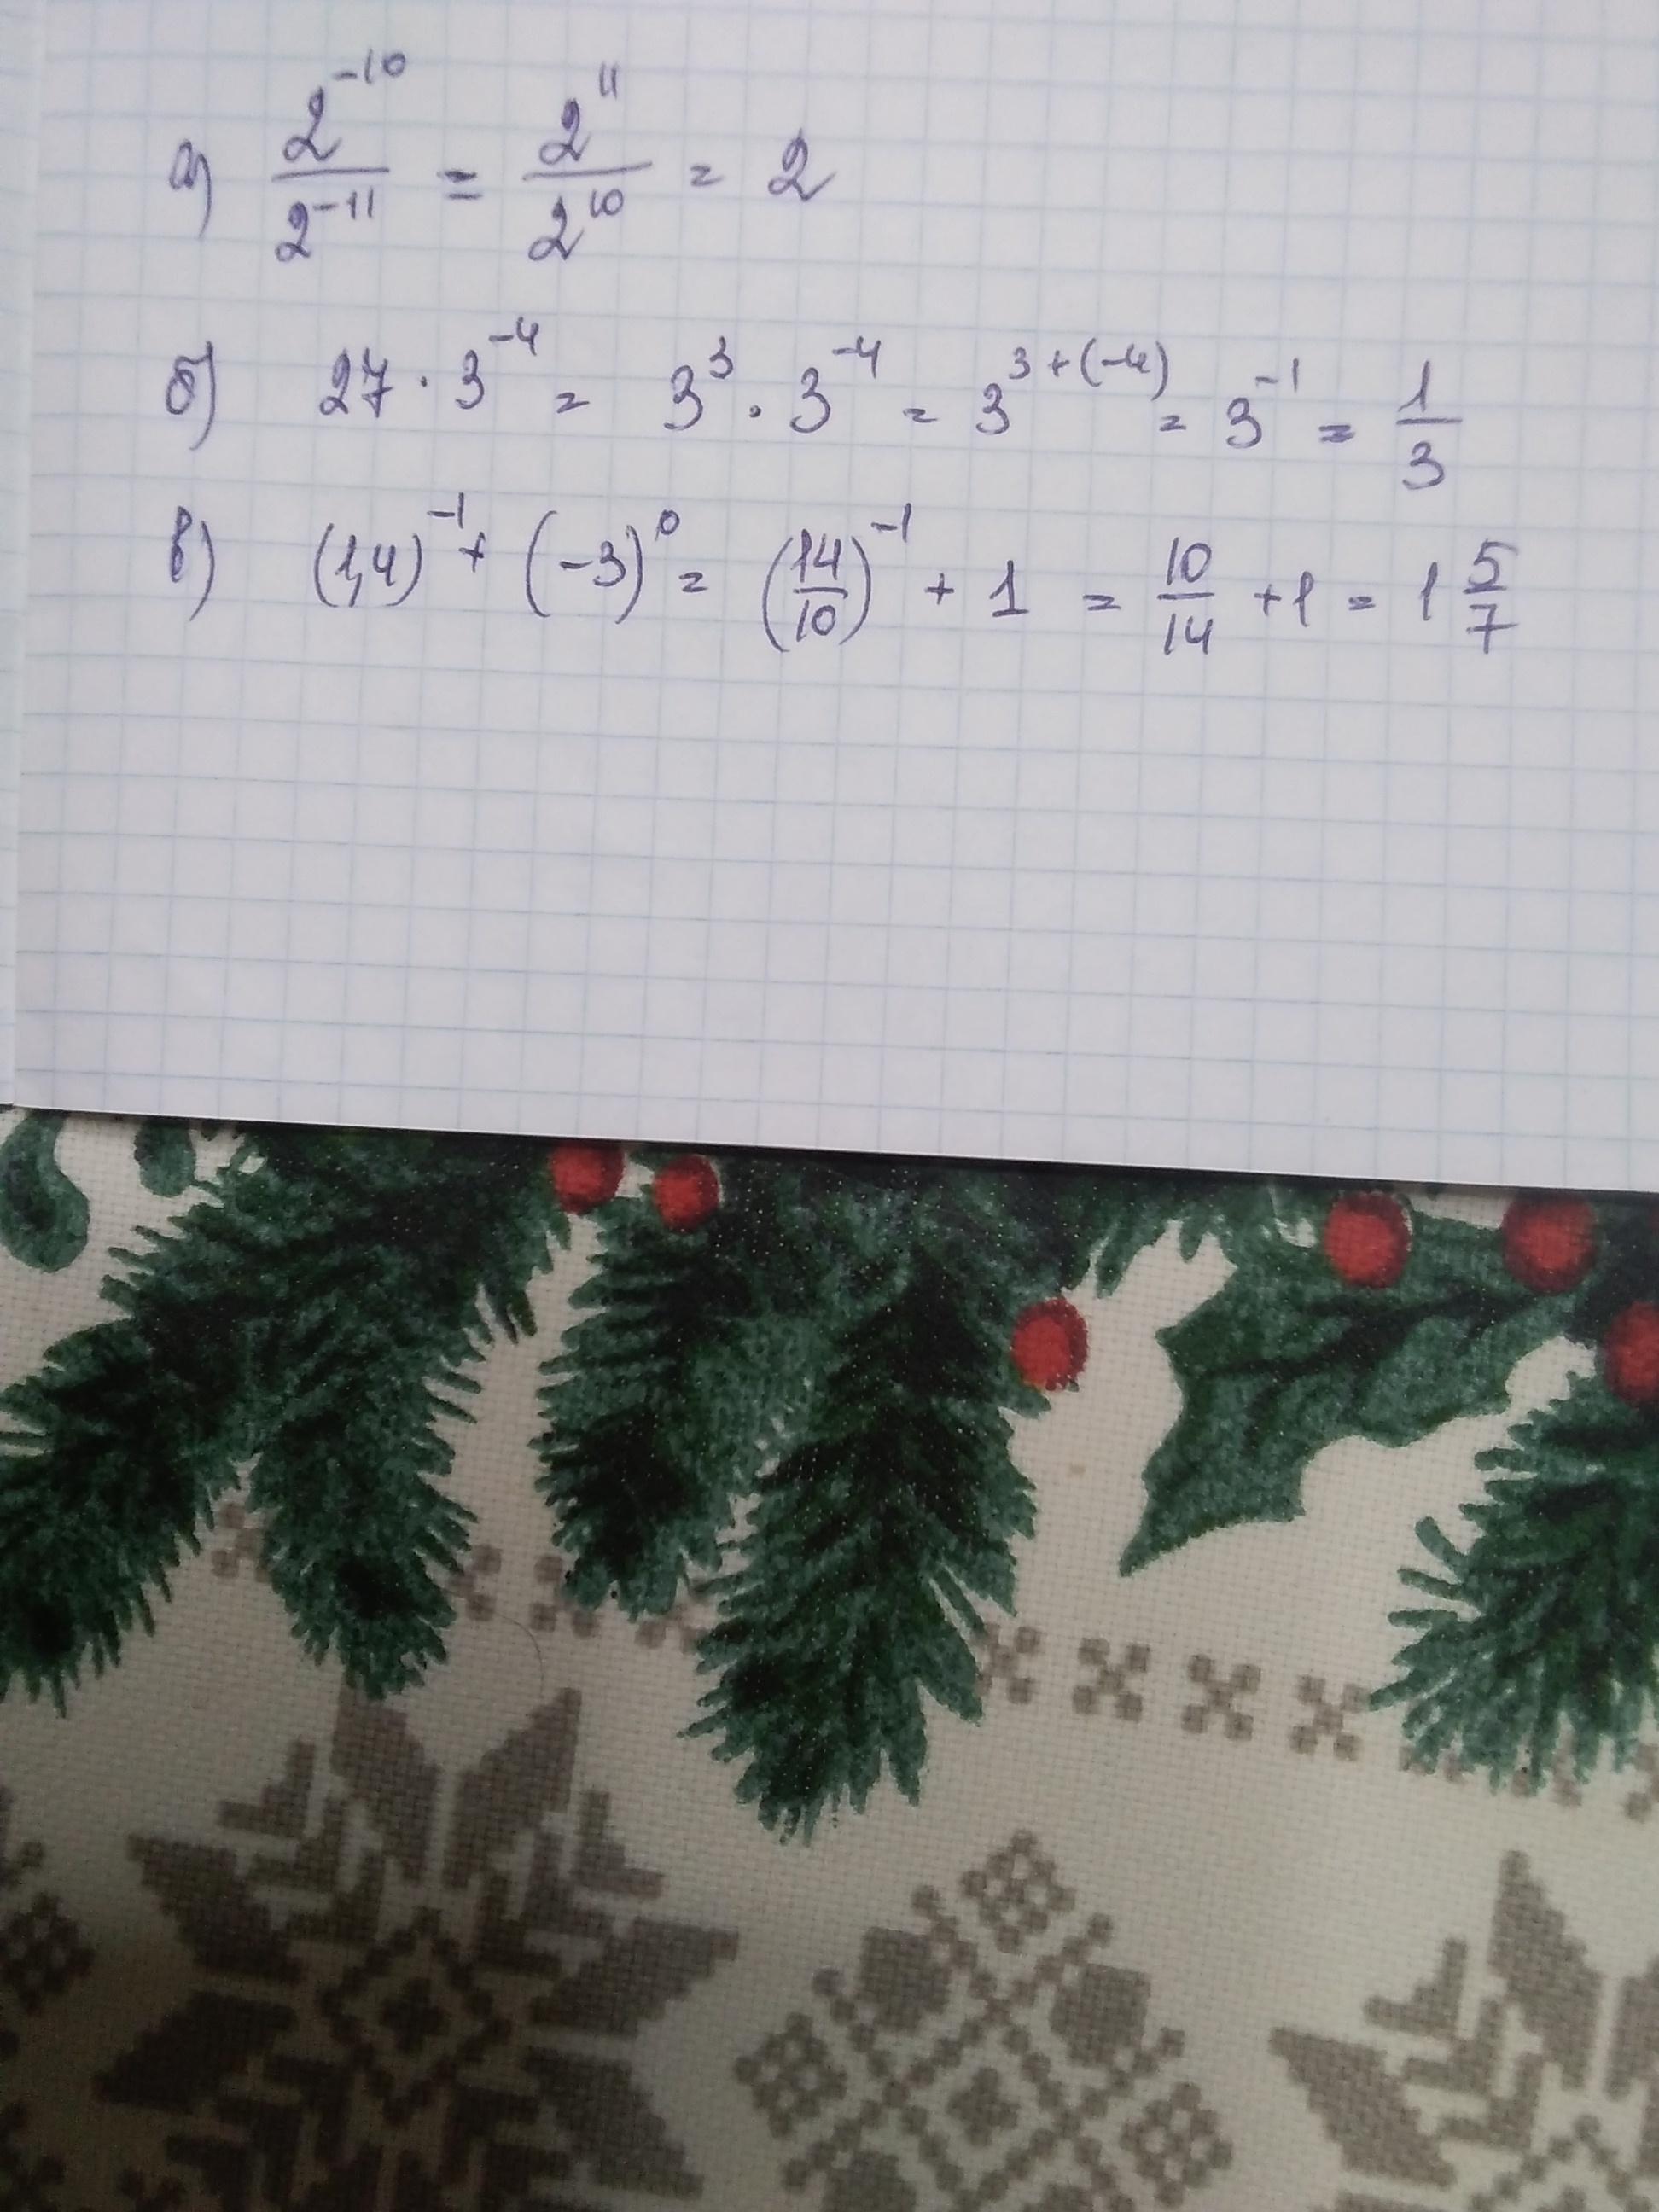 а) 2^-10 / 2^-11 = 2^11 / 2^10 = 2
б) 27 · 3^-4 = 3^3 · 3^-4 = 3^3+(-4) = 3^-1 = 1/3
в) (1,4)^-1 + (-3)^0 = (14/10)^-1 + 1 = 10/14 + 1 = 1 5/7